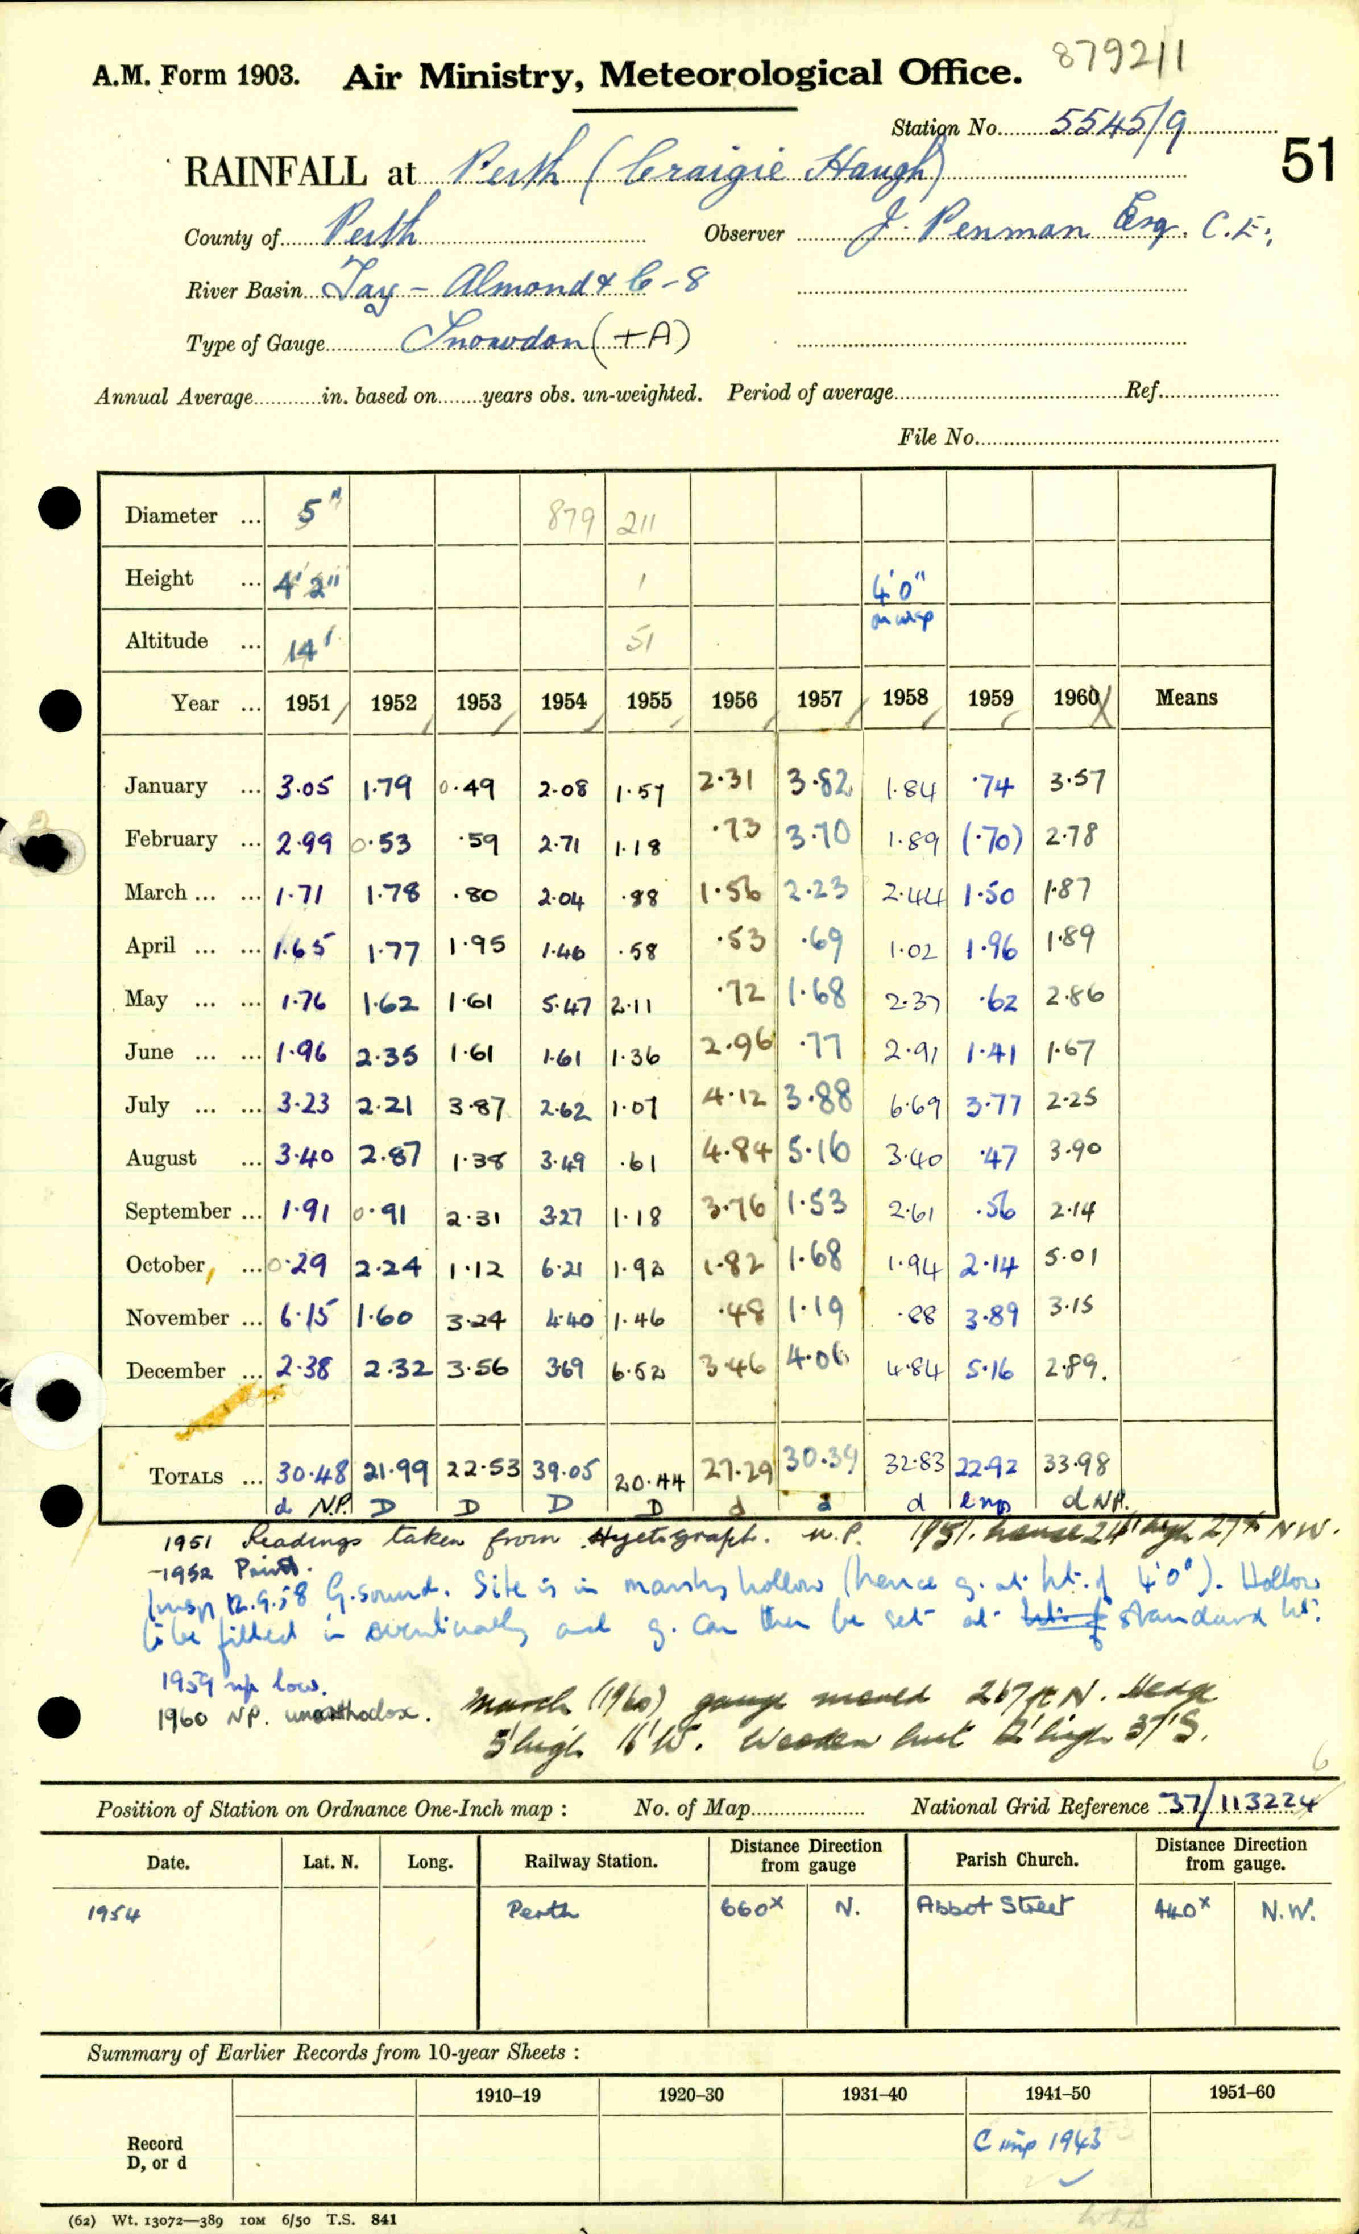 879211
A.M. Form 1903. Air Ministry, Meteorological Office.
Station No. 5545/9
51
RAINFALL at Perth (Craigie Haugh)
County of Perth Observer J. Penman Esq. C.E.
River Basin Tay - Almond & C-8
Type of Gauge Snowdon (+A)
Annual Average in. based on years obs. un-weighted. Period of average Ref.
File No.
Diameter ... 5" 879 211
Height ... 4' 2" 1 4' 0"
Altitude ... 14' 51 on insp
Year ... 1951 1952 1953 1954 1955 1956 1957 1958 1959 1960 Means
January ... 3.05 1.79 0.49 2.08 1.57 2.31 3.82 1.84 .74 3.57
February ... 2.99 0.53 .59 2.71 1.18 .73 3.70 1.89 (.70) 2.78
March ... ... 1.71 1.78 .80 2.04 .88 1.56 2.23 2.44 1.50 1.87
April ... ... 1.65 1.77 1.95 1.46 .58 .53 .69 1.02 1.96 1.89
May ... ... 1.76 1.62 1.61 5.47 2.11 .72 1.68 2.37 .62 2.86
June ... ... 1.96 2.35 1.61 1.61 1.36 2.96 .77 2.91 1.41 1.67
July ... ... 3.23 2.21 3.87 2.62 1.07 4.12 3.88 6.69 3.77 2.25
August ... 3.40 2.87 1.38 3.49 .61 4.84 5.16 3.40 .47 3.90
September ... 1.91 0.91 2.31 3.27 1.18 3.76 1.53 2.61 .56 2.14
October, ... 0.29 2.24 1.12 6.21 1.92 1.82 1.68 1.94 2.14 5.01
November ... 6.15 1.60 3.24 4.40 1.46 .48 1.19 .88 3.89 3.15
December ... 2.38 2.32 3.56 3.69 6.52 3.46 4.06 4.84 5.16 2.89.
TOTALS ... 30.48 21.99 22.53 39.05 20.44 27.29 30.39 32.83 22.92 33.98
d N.P. D D D D d d d d NP.
1951 Readings taken from Hyetograph. N.P. 1951. house 24' high 27ft NW.
-1952
Insp 12.9.58 G. sound. Site is in marshy hollow (hence g. at ht. of 4'0"). Hollow
to be filled in eventually and g. can then be set at ht. of standard ht.
1959 np low.
1960 NP. unorthodox. March (1960) gauge moved 267ft N. Hedge
5' high 16' W. Wooden hut 12' high 37' S.
6
Position of Station on Ordnance One-Inch map : No. of Map National Grid Reference 37/113224
Date. Lat. N. Long. Railway Station. Distance Direction from gauge Parish Church. Distance Direction from gauge.
1954 Perth 660x N. Abbot Street 440x N.W.
Summary of Earlier Records from 10-year Sheets :
1910–19 1920–30 1931–40 1941–50 1951–60
Record D, or d C inp 1943
(62) Wt. 13072—389 10M 6/50 T.S. 841